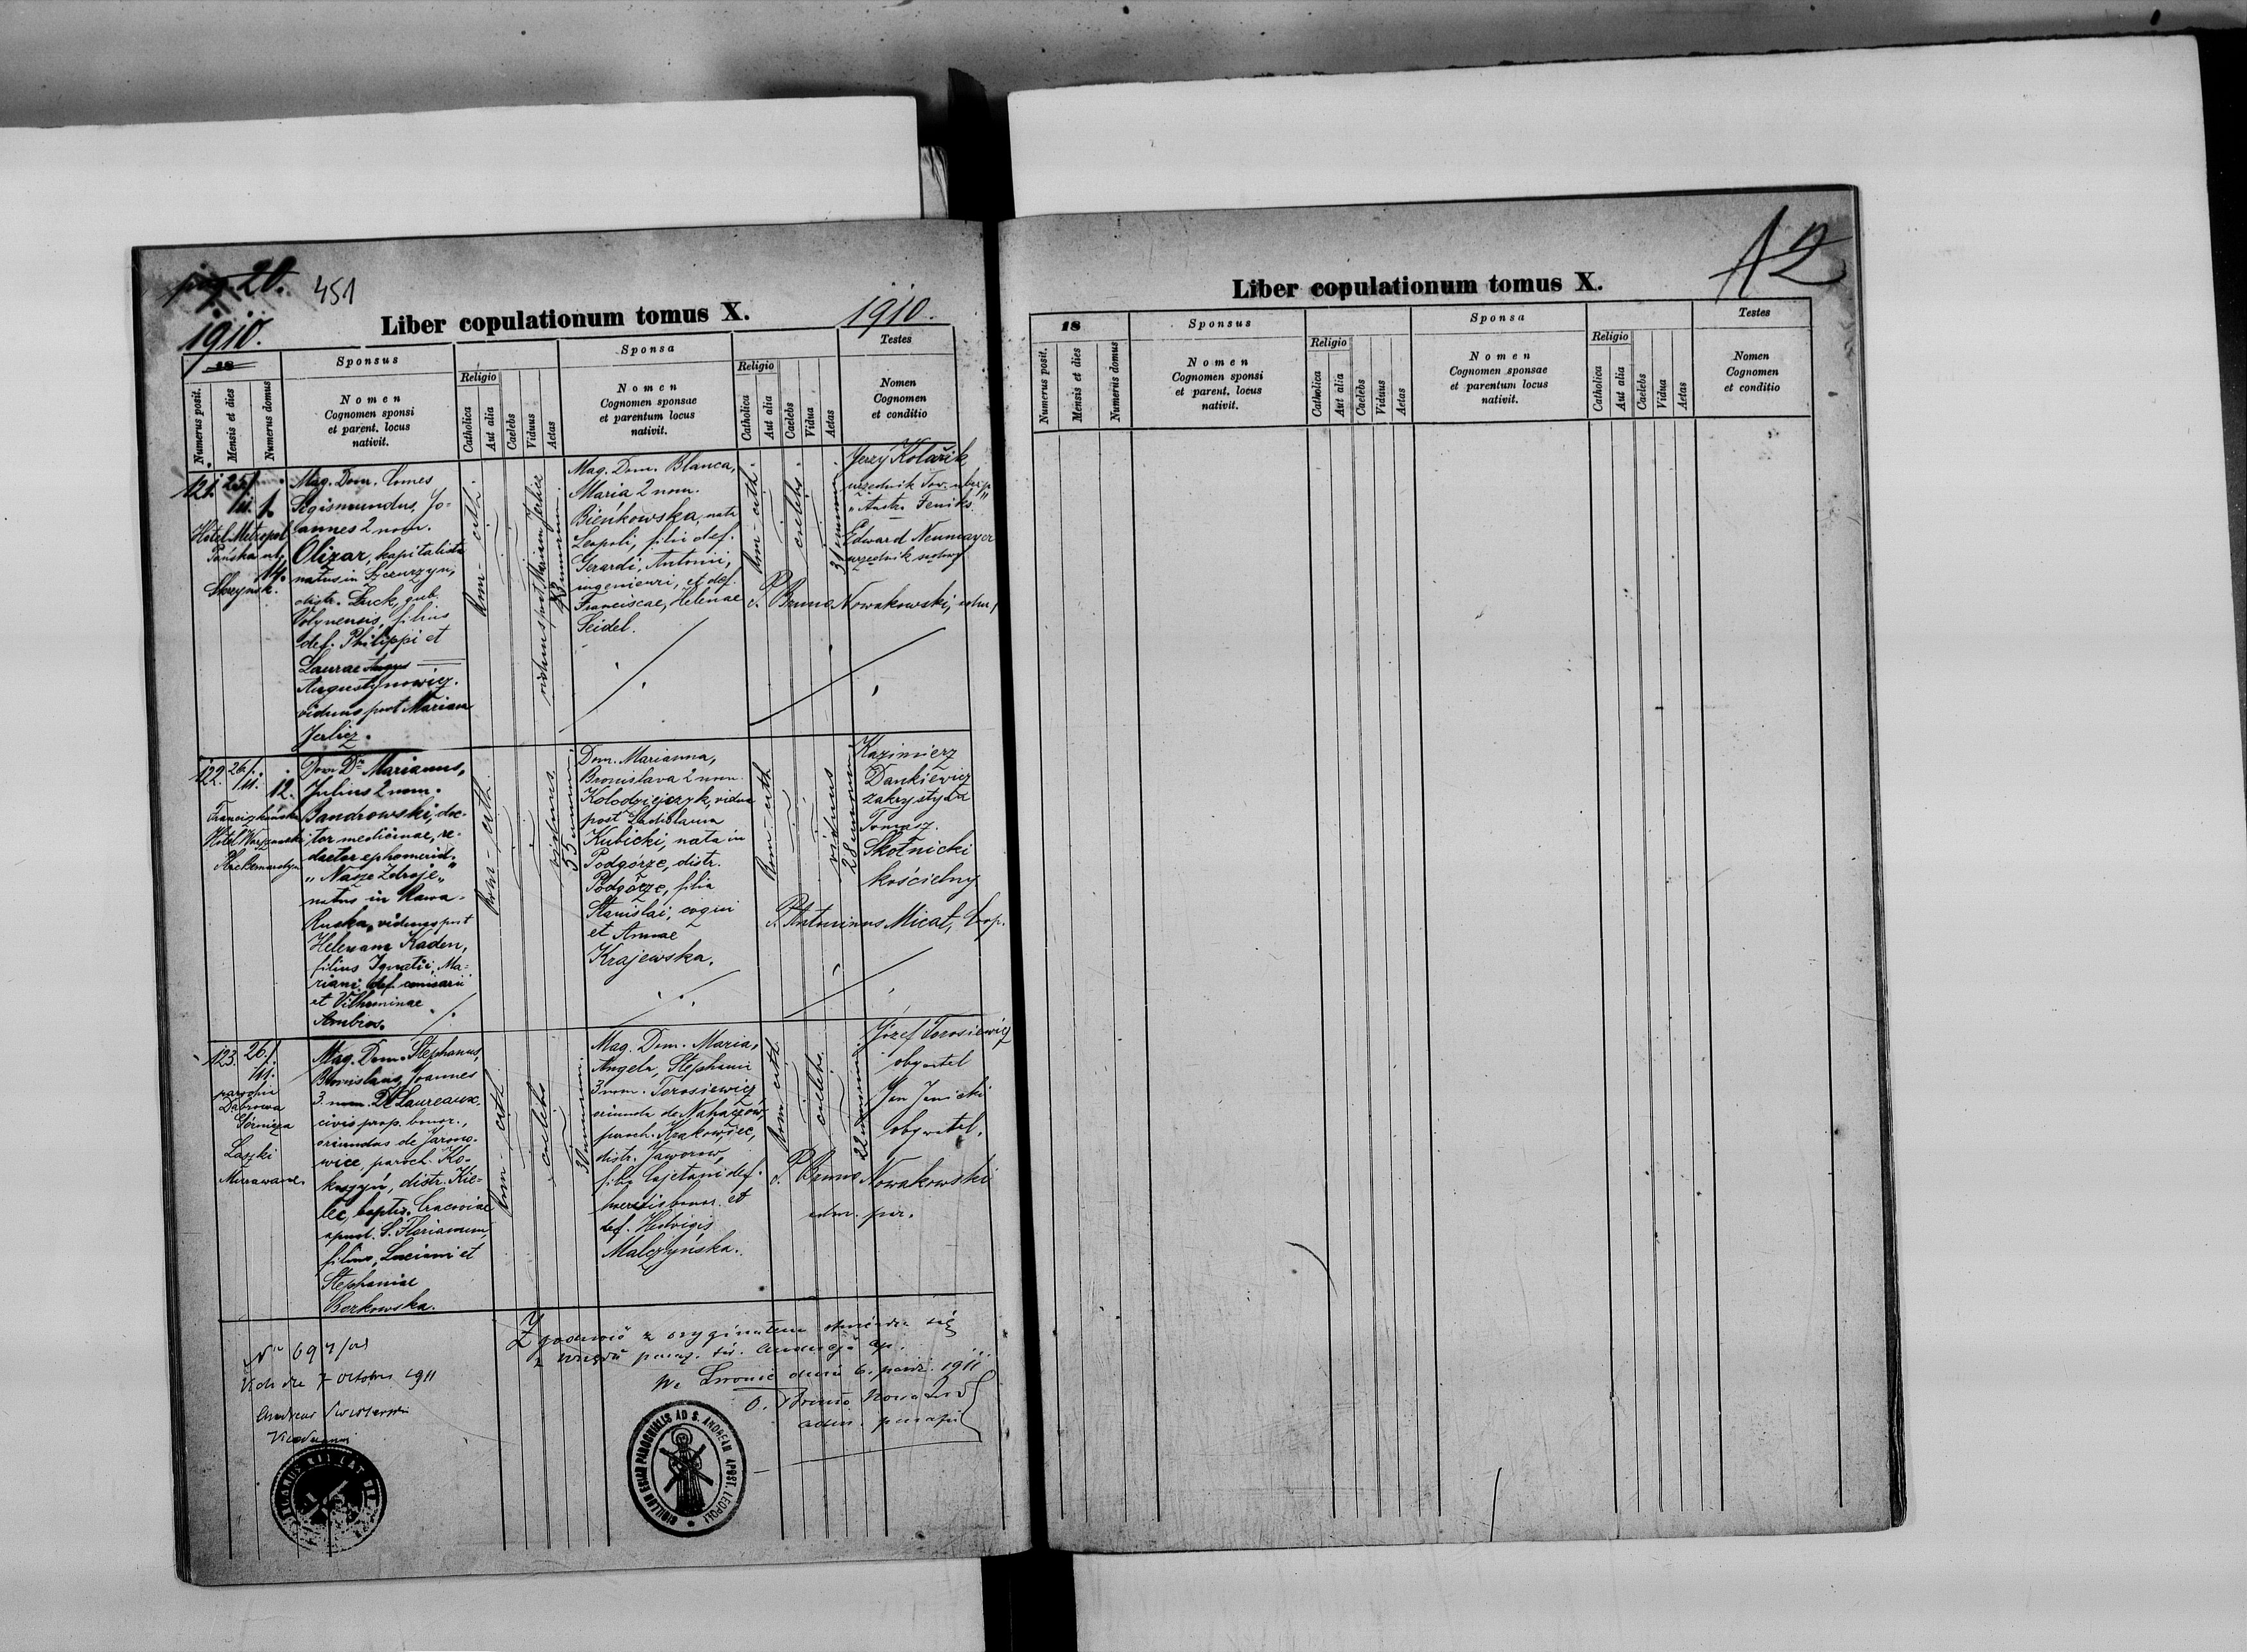 pag. 20.
451
1910.
Liber copulationum tomus X.
1910.
18
Numerus posit.
Mensis et dies
Numerus domus
Sponsus
Nomen
Cognomen sponsi
et parent. locus
nativit.
Religio
Catholica
Aut alia
Caelebs
Viduus
Aetas
Sponsa
Nomen
Cognomen sponsae
et parentum locus
nativit.
Religio
Catholica
Aut alia
Caelebs
Vidua
Aetas
Testes
Nomen
Cognomen
et conditio
121.
25/
Hotel Metropol
Pańska ul.
14.
Mag. Dom. Comes
Sigismundus, Jo-
annes 2 nom.
Olizar, kapitalista
natus in
distr. Łuck, gub.
Volynensis, filius
def. Philippi et
Laurae
Augustynowicz.
viduus post Mariam
Jerlicz.
Rom-cath.
viduus post Mariam Jerlicz
Mag. Dom. Blanca,
Maria 2 nom.
Bieńkowska, nata
Leopoli, filia def.
Gerardi, Antonii,
ingenieuri, et def.
Franciscae, Helenae
Seidel.
Rom-cath.
caelebs.
Jerzy Kolařik
urzędnik Tow.
"Austr. Feniks"
Edward Neumayer
urzędnik
P. Bruno Nowakowski,
122.
26/
12.
Franciszkańska
Hotel Warszawski
Dom. Dr. Marianus,
Julius 2 nom.
Bandrowski, doc-
tor medicinae, re-
dactor ephemerid.
"Nasze Zdroje"
natus in Rawa-
Ruska, viduus post
Helenam Kaden,
filius Ignatii, Ma-
riani, def.
et Vilhelminae
Ambros.
Rom-cath.
viduus
55 annorum
Dom. Marianna,
Bronislava 2 nom.
Kolodziejczyk, vidua
post Ladislaum
Kubicki, nata in
Podgórze, distr.
Podgórze, filia
Stanislai,
et Annae
Krajewska.
Rom-cath
viduus
28 annorum
Kazimierz
Dankiewicz
zakrystyan
Tomasz
Skotnicki
kościelny
P. Antoninus Micał, Coop.
123.
26/
parafia
Dąbrowa
Górnicza
Laszki
Murowane.
Mag. Dom. Stephanus,
Bronislaus, Joannes
3. nom. De Laureaux,
civis prop. bonor.,
oriundus de Jarono-
wice, paroch. Ko-
distr. Kie-
lce, baptis. Cracoviae
apud. S. Florianum,
filius, Luciani et
Stephaniae
Borkowska.
Rom-cath.
caelebs
31 annorum
Mag. Dom. Maria,
Angela, Stephania
3 nom. Torosiewicz,
oriunda de Nahaczów,
paroch. Krakowiec,
distr. Jaworow,
filia Cajetani def.
haeredis bonor. et
def. Hedvigis
Malczyńska.
Rom cath.
caelebs.
22 annorum
Józef Torosiewicz
obywatel
Jan Janicki
obywatel.
P. Bruno Nowakowski
adm. par.
Zgodność z oryginałem stwierdza się
z urzędu paraf. św. Andrzeja Ap.
We Lwowie dnia 6. paźdz. 1911.
O. Bruno Nowakowski
adm. parafii
7 octobris 1911
SIGILLUM ECCLAE PAROCHIALIS AD S. ANDREAM APOST. LEOPOLI
Liber copulationum tomus X.
12
18
Numerus posit.
Mensis et dies
Numerus domus
Sponsus
Nomen
Cognomen sponsi
et parent. locus
nativit.
Religio
Catholica
Aut alia
Caelebs
Viduus
Aetas
Sponsa
Nomen
Cognomen sponsae
et parentum locus
nativit.
Religio
Catholica
Aut alia
Caelebs
Vidua
Aetas
Testes
Nomen
Cognomen
et conditio